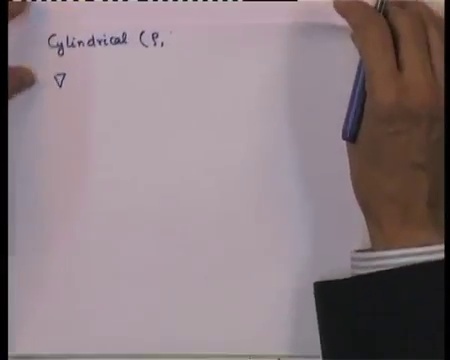 Cylindrical (ρ,
∇